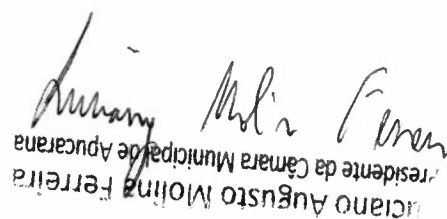 uciano Augusto Molina Ferreira
residente da Câmara Municipal de Apucarana